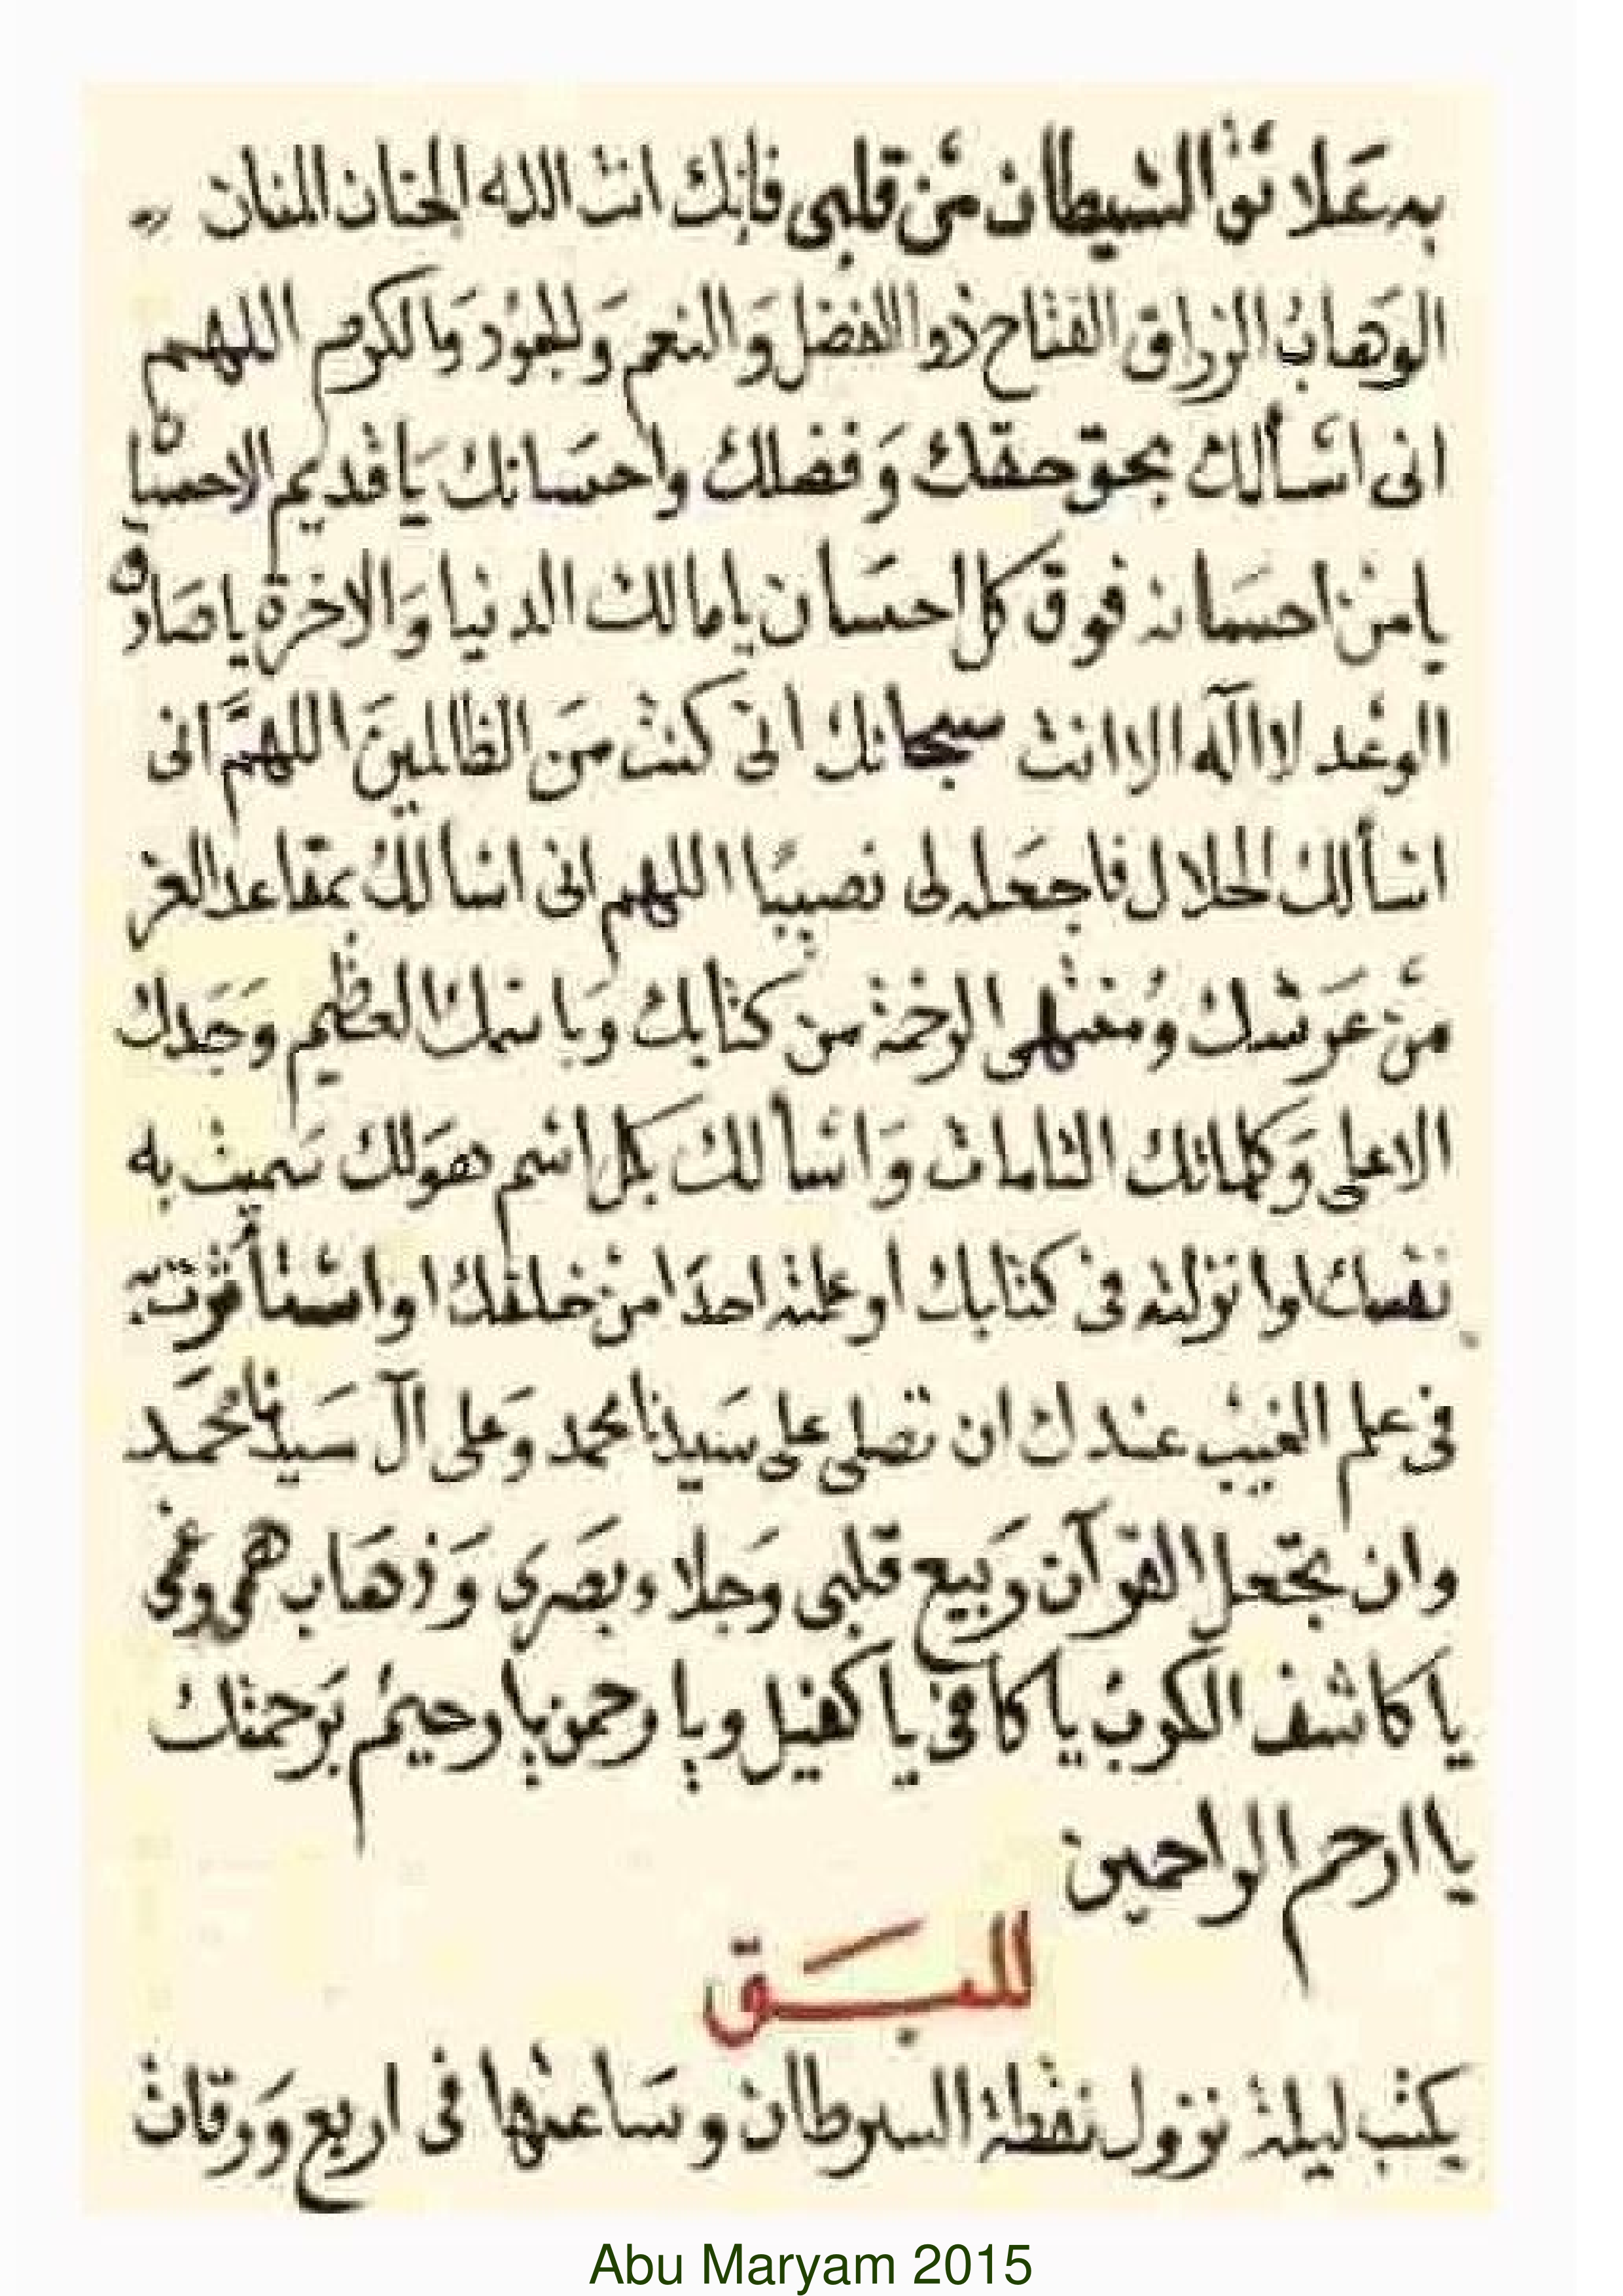 به علائق الشيطان من قلبى فانك انت الله الحنان المنان
الوهاب الرزاق الفتاح ذو الفضل والنعم وللجود والكرم اللهم
انى اسألك بحق حقك وفضلك واحسانك ياقديم الاحسان
يامن احسانه فوق كل احسان يامالك الدنيا والاخرة ياصادق
الوعد لااله الاانت سبحانك انى كنت من الظالمين اللهم انى
اسألك الحلال فاجعله لى نصيبا اللهم انى اسألك بمقاعد العز
من عرشك ومنتهى الرحمة من كتابك وباسمك العظيم وجدك
الاعلى وكلماتك التامات واسألك بكل اسم هولك سميت به
نفسك اوانزلته فى كتابك اوعلمته احدا من خلقك اواستأثرت به
فى علم الغيب عندك ان تصلى على سيدنا محمد وعلى آل سيدنا محمد
وان تجعل القرآن ربيع قلبى وجلاء بصرى وذهاب همى وغمى
يا كاشف الكرب يا كافى يا كفيل ويا رحمن يا رحيم برحمتك
يا ارحم الراحمين
للبق
يكتب ليلة نزول نقطة السرطان وساعتها فى اربع ورقات
Abu Maryam 2015